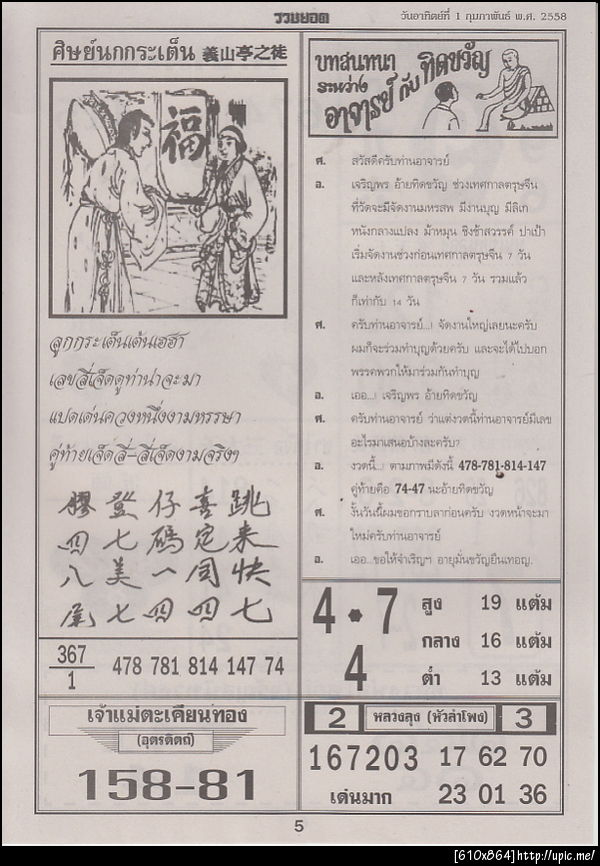 รวมยอด
วันอาทิตย์ที่ 1 กุมภาพันธ์ พ.ศ. 2558
ศิษย์นกกระเต็น 義山亭之徒
福
ลูกกระเต็นเต้นเฮฮา
เลขสี่เจ็ดดูท่าน่าจะมา
แปดเด่นควงหนึ่งงามหรรษา
คู่ท้ายเจ็ดสี่-สี่เจ็ดงามจริงๆ
膠 登 仔 喜 跳
四 七 碼 定 来
八 美 一 同 快
尾 七 四 四 七
367
1
478 781 814 147 74
เจ้าแม่ตะเคียนทอง
(อุตรดิตถ์)
158-81
บทสนทนา
ระหว่าง
อาจารย์ กับ ทิดขวัญ
ศ. สวัสดีครับท่านอาจารย์
อ. เจริญพร อ้ายทิดขวัญ ช่วงเทศกาลตรุษจีน
ที่วัดจะมีจัดงานมหรสพ มีงานบุญ มีลิเก
หนังกลางแปลง ม้าหมุน ชิงช้าสวรรค์ ปาเป้า
เริ่มจัดงานช่วงก่อนเทศกาลตรุษจีน 7 วัน
และหลังเทศกาลตรุษจีน 7 วัน รวมแล้ว
ก็เท่ากับ 14 วัน
ศ. ครับท่านอาจารย์...! จัดงานใหญ่เลยนะครับ
ผมก็จะร่วมทำบุญด้วยครับ และจะได้ไปบอก
พรรคพวกให้มาร่วมกันทำบุญ
อ. เออ...! เจริญพร อ้ายทิดขวัญ
ศ. ครับท่านอาจารย์ ว่าแต่งวดนี้ท่านอาจารย์มีเลข
อะไรมาเสนอบ้างละครับ?
อ. งวดนี้...! ตามภาพมีดังนี้ 478-781-814-147
คู่ท้ายคือ 74-47 นะอ้ายทิดขวัญ
ศ. งั้นวันนี้ผมขอกราบลาก่อนครับ งวดหน้าจะมา
ใหม่ครับท่านอาจารย์
อ. เออ...ขอให้จำเริญๆ อายุมั่นขวัญยืนเทอญ.
4 • 7
4
สูง 19 แต้ม
กลาง 16 แต้ม
ต่ำ 13 แต้ม
2 หลวงลุง (หัวลำโพง) 3
167203 17 62 70
เด่นมาก 23 01 36
5
[610x864]http://upic.me/